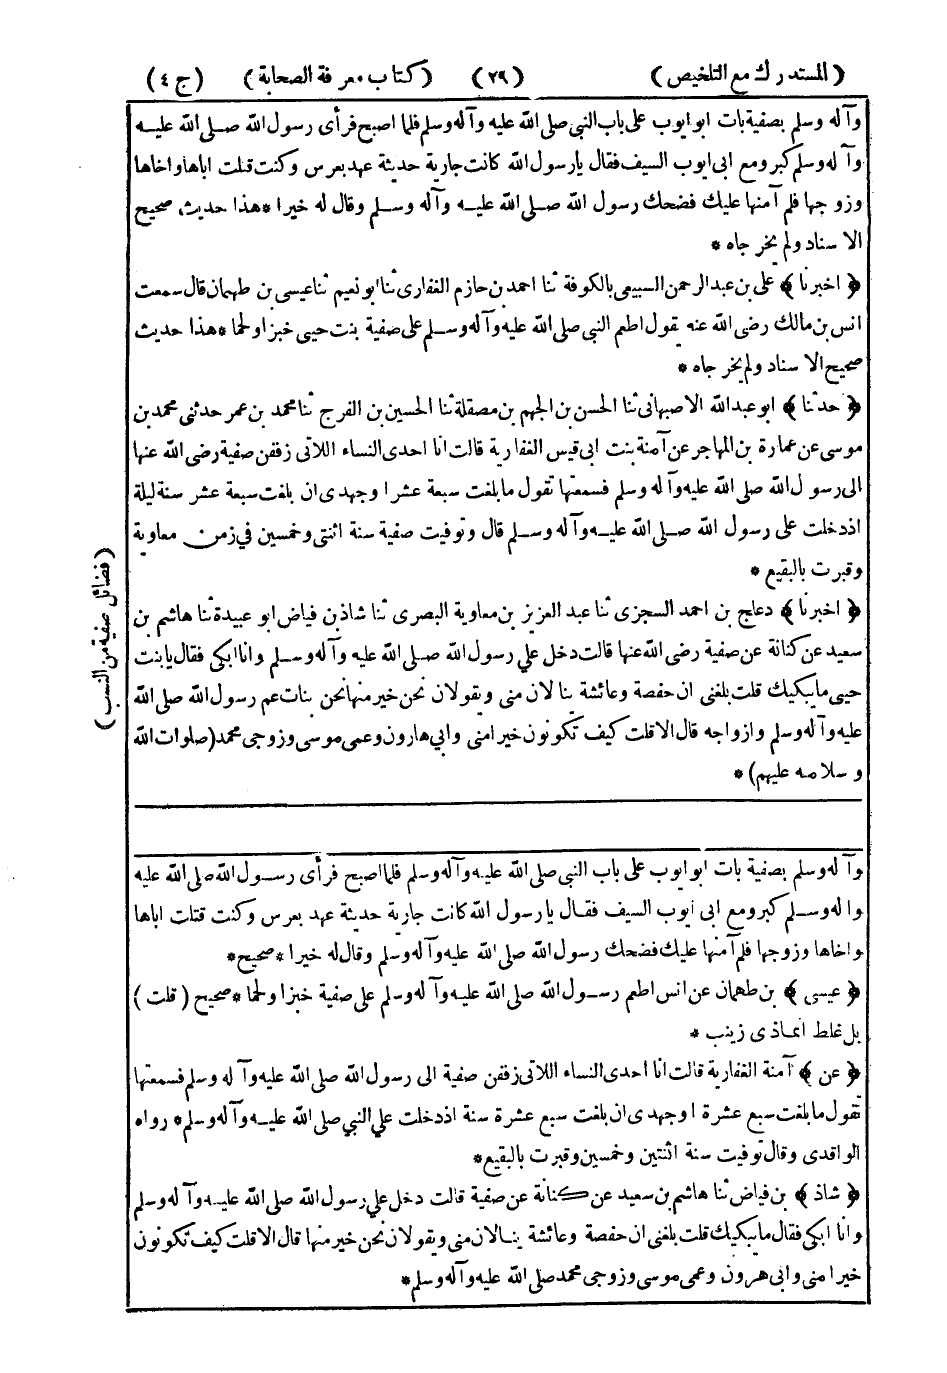 (المستدرك مع التلخيص) (٢٩) (كتاب معرفة الصحابة) (ج ٤)
وآله وسلم بصفية بات ابو ايوب على باب النبي صلى الله عليه وآله وسلم فلما اصبح فرأى رسول الله صلى الله عليه
وآله وسلم كبر ومع ابى ايوب السيف فقال يا رسول الله كانت جارية حديثة عهد بعرس وكنت قتلت اباها واخاها
وزوجها فلم آمنها عليك فضحك رسول الله صلى الله عليه وآله وسلم وقال له خيرا * هذا حديث صحيح
الاسناد ولم يخرجاه *
﴿ اخبرنا ﴾ على بن عبد الرحمن السبيعى بالكوفة ثنا احمد بن حازم الغفارى ثنا ابو نعيم ثنا عيسى بن طهمان قال سمعت
انس بن مالك رضى الله عنه يقول اطعم النبي صلى الله عليه وآله وسلم على صفية بنت حيى خبزا ولحما * هذا حديث
صحيح الاسناد ولم يخرجاه *
﴿ حدثنا ﴾ ابو عبد الله الاصبهانى ثنا الحسن بن الجهم بن مصقلة ثنا الحسين بن الفرج ثنا محمد بن عمر حدثنى محمد بن
موسى عن عمارة بن المهاجر عن آمنة بنت ابى قيس الغفارية قالت انا احدى النساء اللاتى زففن صفية رضى الله عنها
الى رسول الله صلى الله عليه وآله وسلم فسمعتها تقول ما بلغت سبعة عشرا وجهدى ان بلغت سبعة عشر سنة ليلة
اذ دخلت على رسول الله صلى الله عليه وآله وسلم قال وتوفيت صفية سنة اثنتى وخمسين في زمن معاوية
وقبرت بالبقيع *
﴿ اخبرنا ﴾ دعلج بن احمد السجزى ثنا عبد العزيز بن معاوية البصرى ثنا شاذ بن فياض ابو عبيدة ثنا هاشم بن
سعيد عن كنانة عن صفية رضى الله عنها قالت دخل علي رسول الله صلى الله عليه وآله وسلم وانا ابكى فقال يا بنت
حيى ما يبكيك قلت بلغنى ان حفصة وعائشة ينالان منى ويقولان نحن خير منها نحن بنات عم رسول الله صلى الله
عليه وآله وسلم وازواجه قال الا قلت كيف تكونون خيرا منى وابى هارون وعمى موسى وزوجى محمد (صلوات الله
وسلامه عليهم) *
(فضائل صفية من النسب)
وآله وسلم بصفية بات ابو ايوب على باب النبي صلى الله عليه وآله وسلم فلما اصبح فرأى رسول الله صلى الله عليه
واله وسلم كبر ومع ابى ايوب السيف فقال يا رسول الله كانت جارية حديثة عهد بعرس وكنت قتلت اباها
واخاها وزوجها فلم آمنها عليك فضحك رسول الله صلى الله عليه وآله وسلم وقال له خيرا * صحيح *
﴿ عيسى ﴾ بن طهمان عن انس اطعم رسول الله صلى الله عليه وآله وسلم على صفية خبزا ولحما * صحيح (قلت)
بل غلط انما ذى زينب *
﴿ عن ﴾ آمنة الغفارية قالت انا احدى النساء اللاتى زففن صفية الى رسول الله صلى الله عليه وآله وسلم فسمعتها
تقول ما بلغت سبع عشرة او جهدى ان بلغت سبع عشرة سنة اذ دخلت علي النبي صلى الله عليه وآله وسلم * رواه
الواقدى وقال توفيت سنة اثنتين وخمسين وقبرت بالبقيع *
﴿ شاذ ﴾ بن فياض ثنا هاشم بن سعيد عن كنانة عن صفية قالت دخل علي رسول الله صلى الله عليه وآله وسلم
وانا ابكى فقال ما يبكيك قلت بلغنى ان حفصة وعائشة ينالان منى ويقولان نحن خير منها قال الا قلت كيف تكونون
خيرا منى وابى هرون وعمى موسى وزوجى محمد صلى الله عليه وآله وسلم *